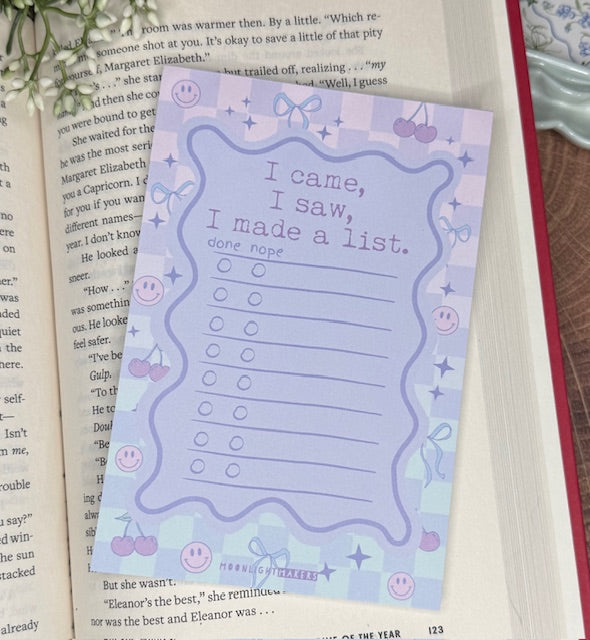 room was warmer then. By a little. “Which re-
someone shot at you. It’s okay to save a little of that pity
Margaret Elizabeth.”
she
but trailed off, realizing . . . “my
And then she
“Well, I guess
you were bound to get
She waited for the
he was the most
Margaret Elizabeth
you a Capricorn. I
for you if you
different names—
year. I don’t know
He looked a
sneer.
“How . . .”
was
ous. He looke
feel safer.
“I’ve be
Gulp,
“To th
He to
Doul
“Be
“B
He
ing d
alw
sibl
H
But she wasn’t.
“Eleanor’s the best,” she
nor was the best and Eleanor was . . .
OF THE YEAR
123
no
ere
on
her.”
was
nded
quiet
the
here.
self-
t—
Isn’t
m me,
rouble
u say?”
d win-
he sun
stacked
already
I came,
I saw,
I made a list.
done nope
MOONLIGHTMAKERS